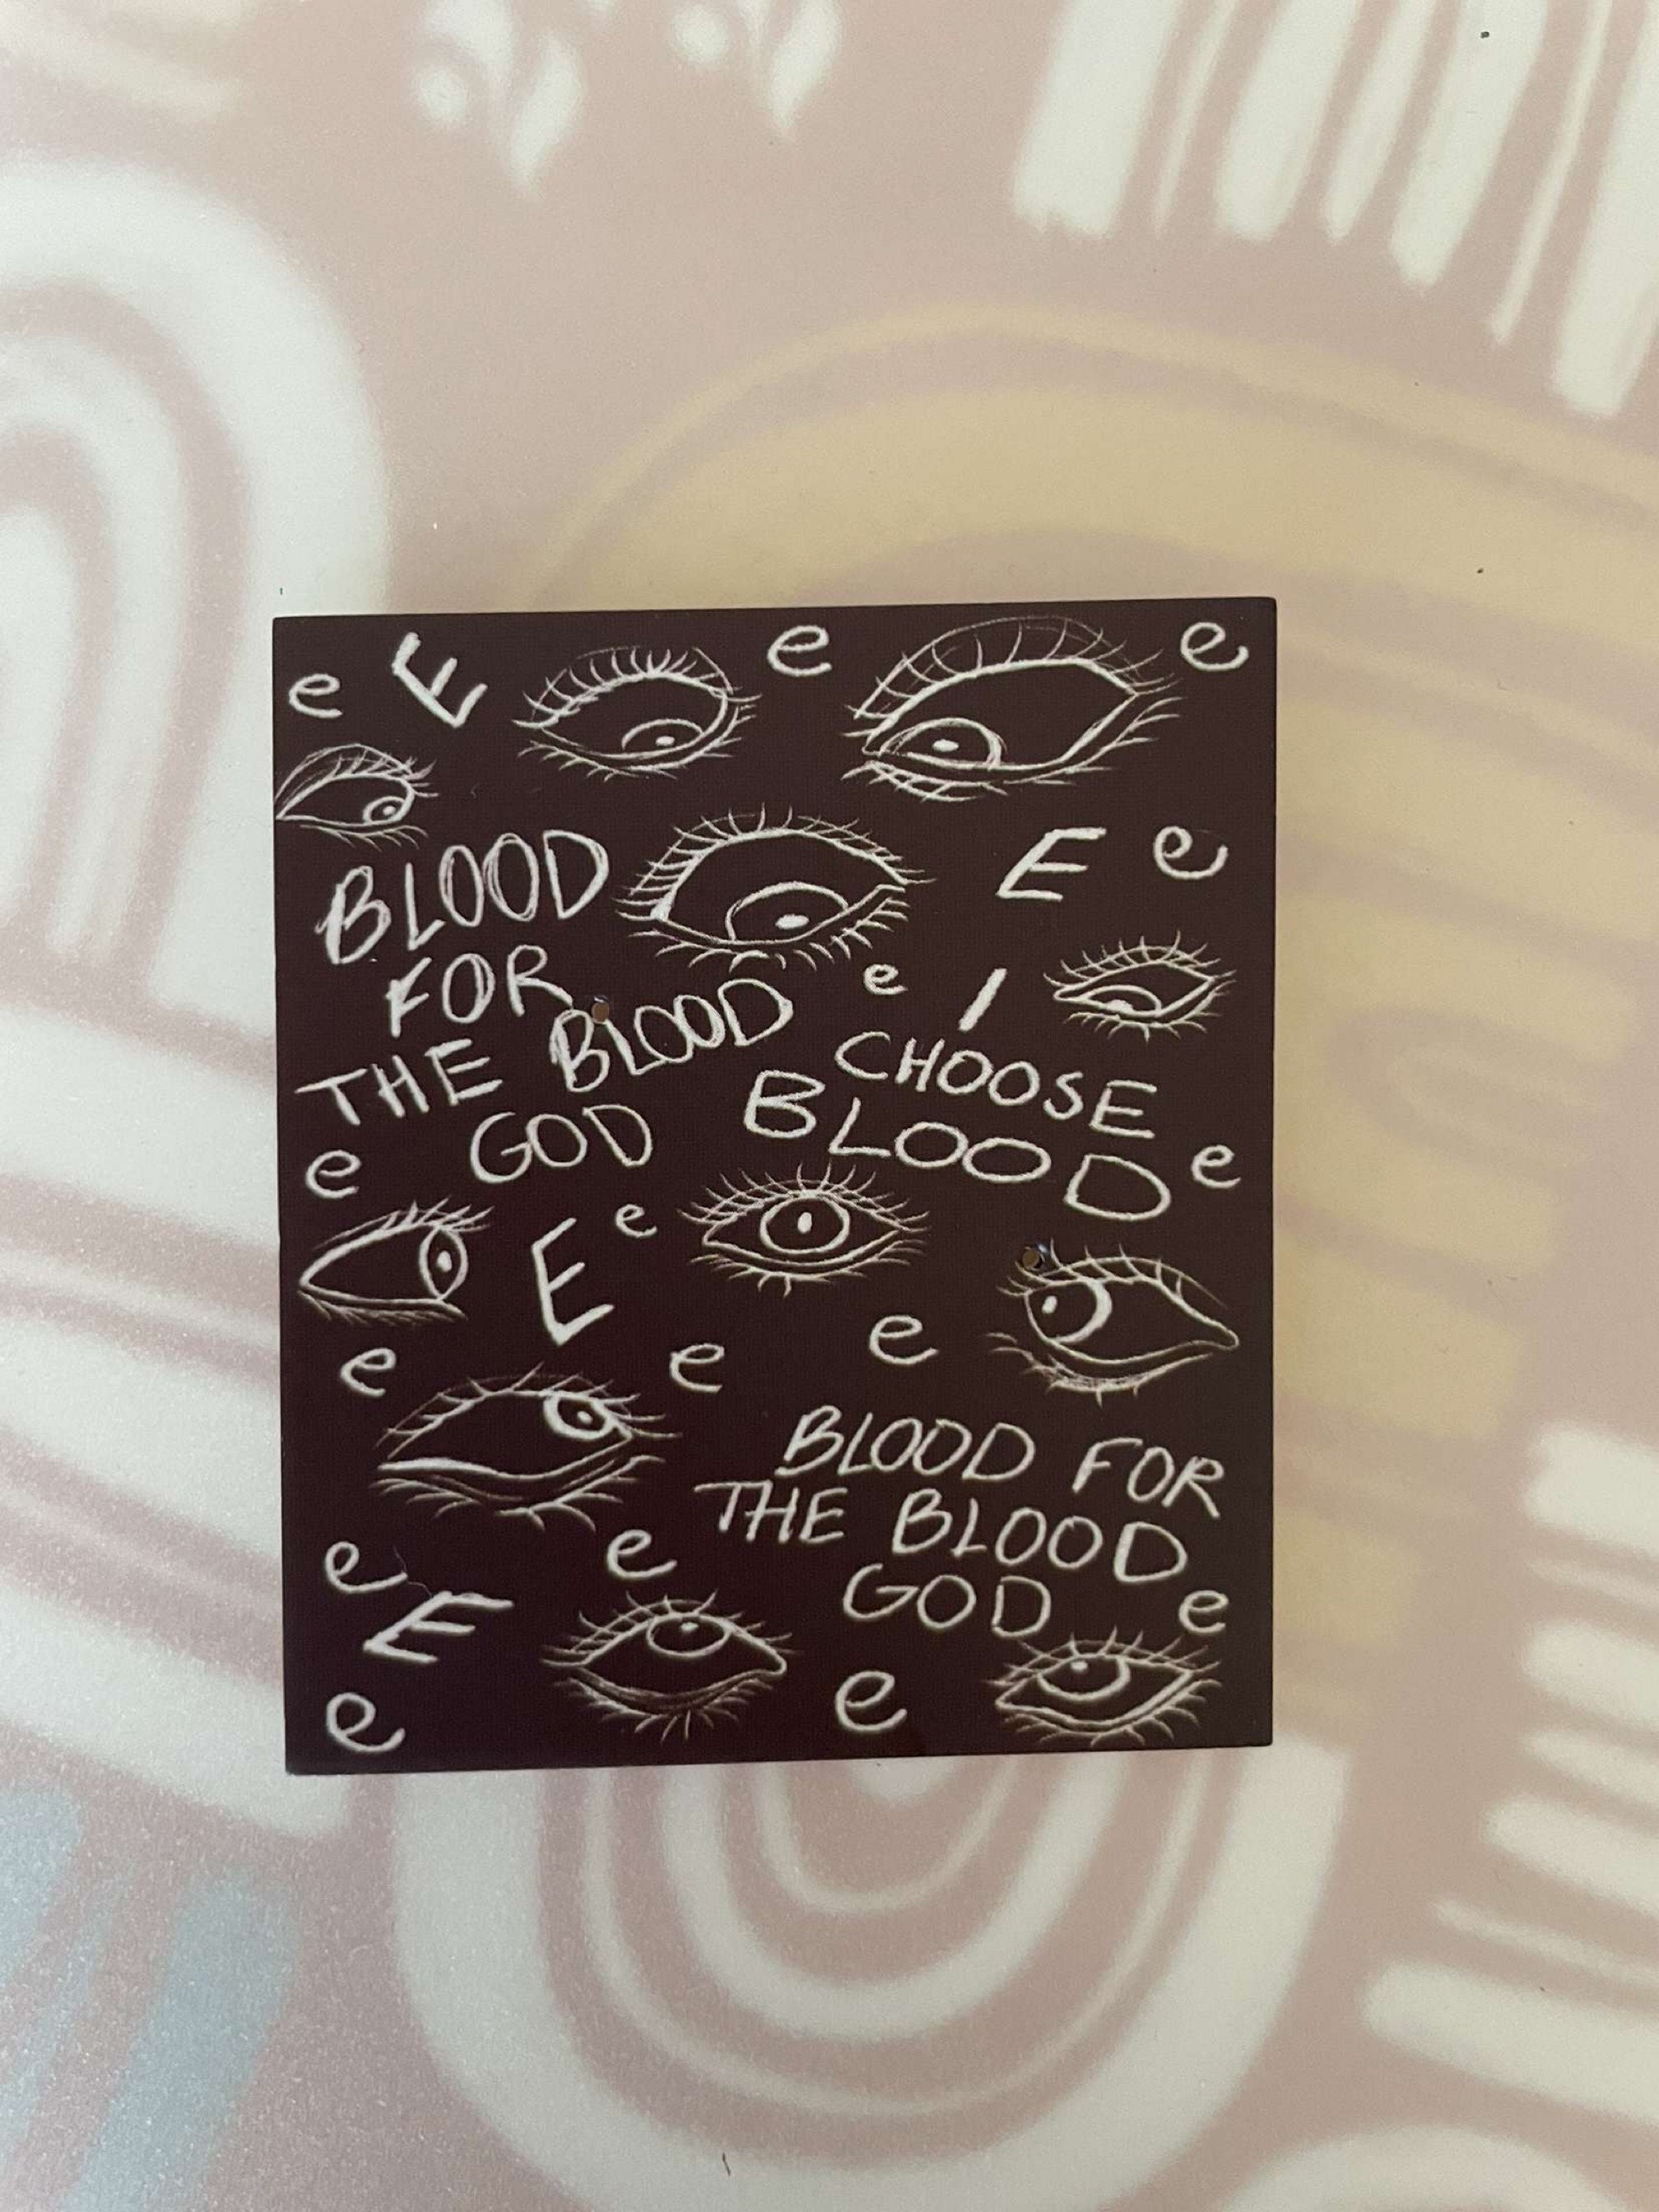 e E e e
BLOOD
FOR
THE BLOOD
GOD
E e
e I
CHOOSE
BLOOD
e e
E e
e e e
BLOOD FOR
THE BLOOD
GOD
e e e
E
e e